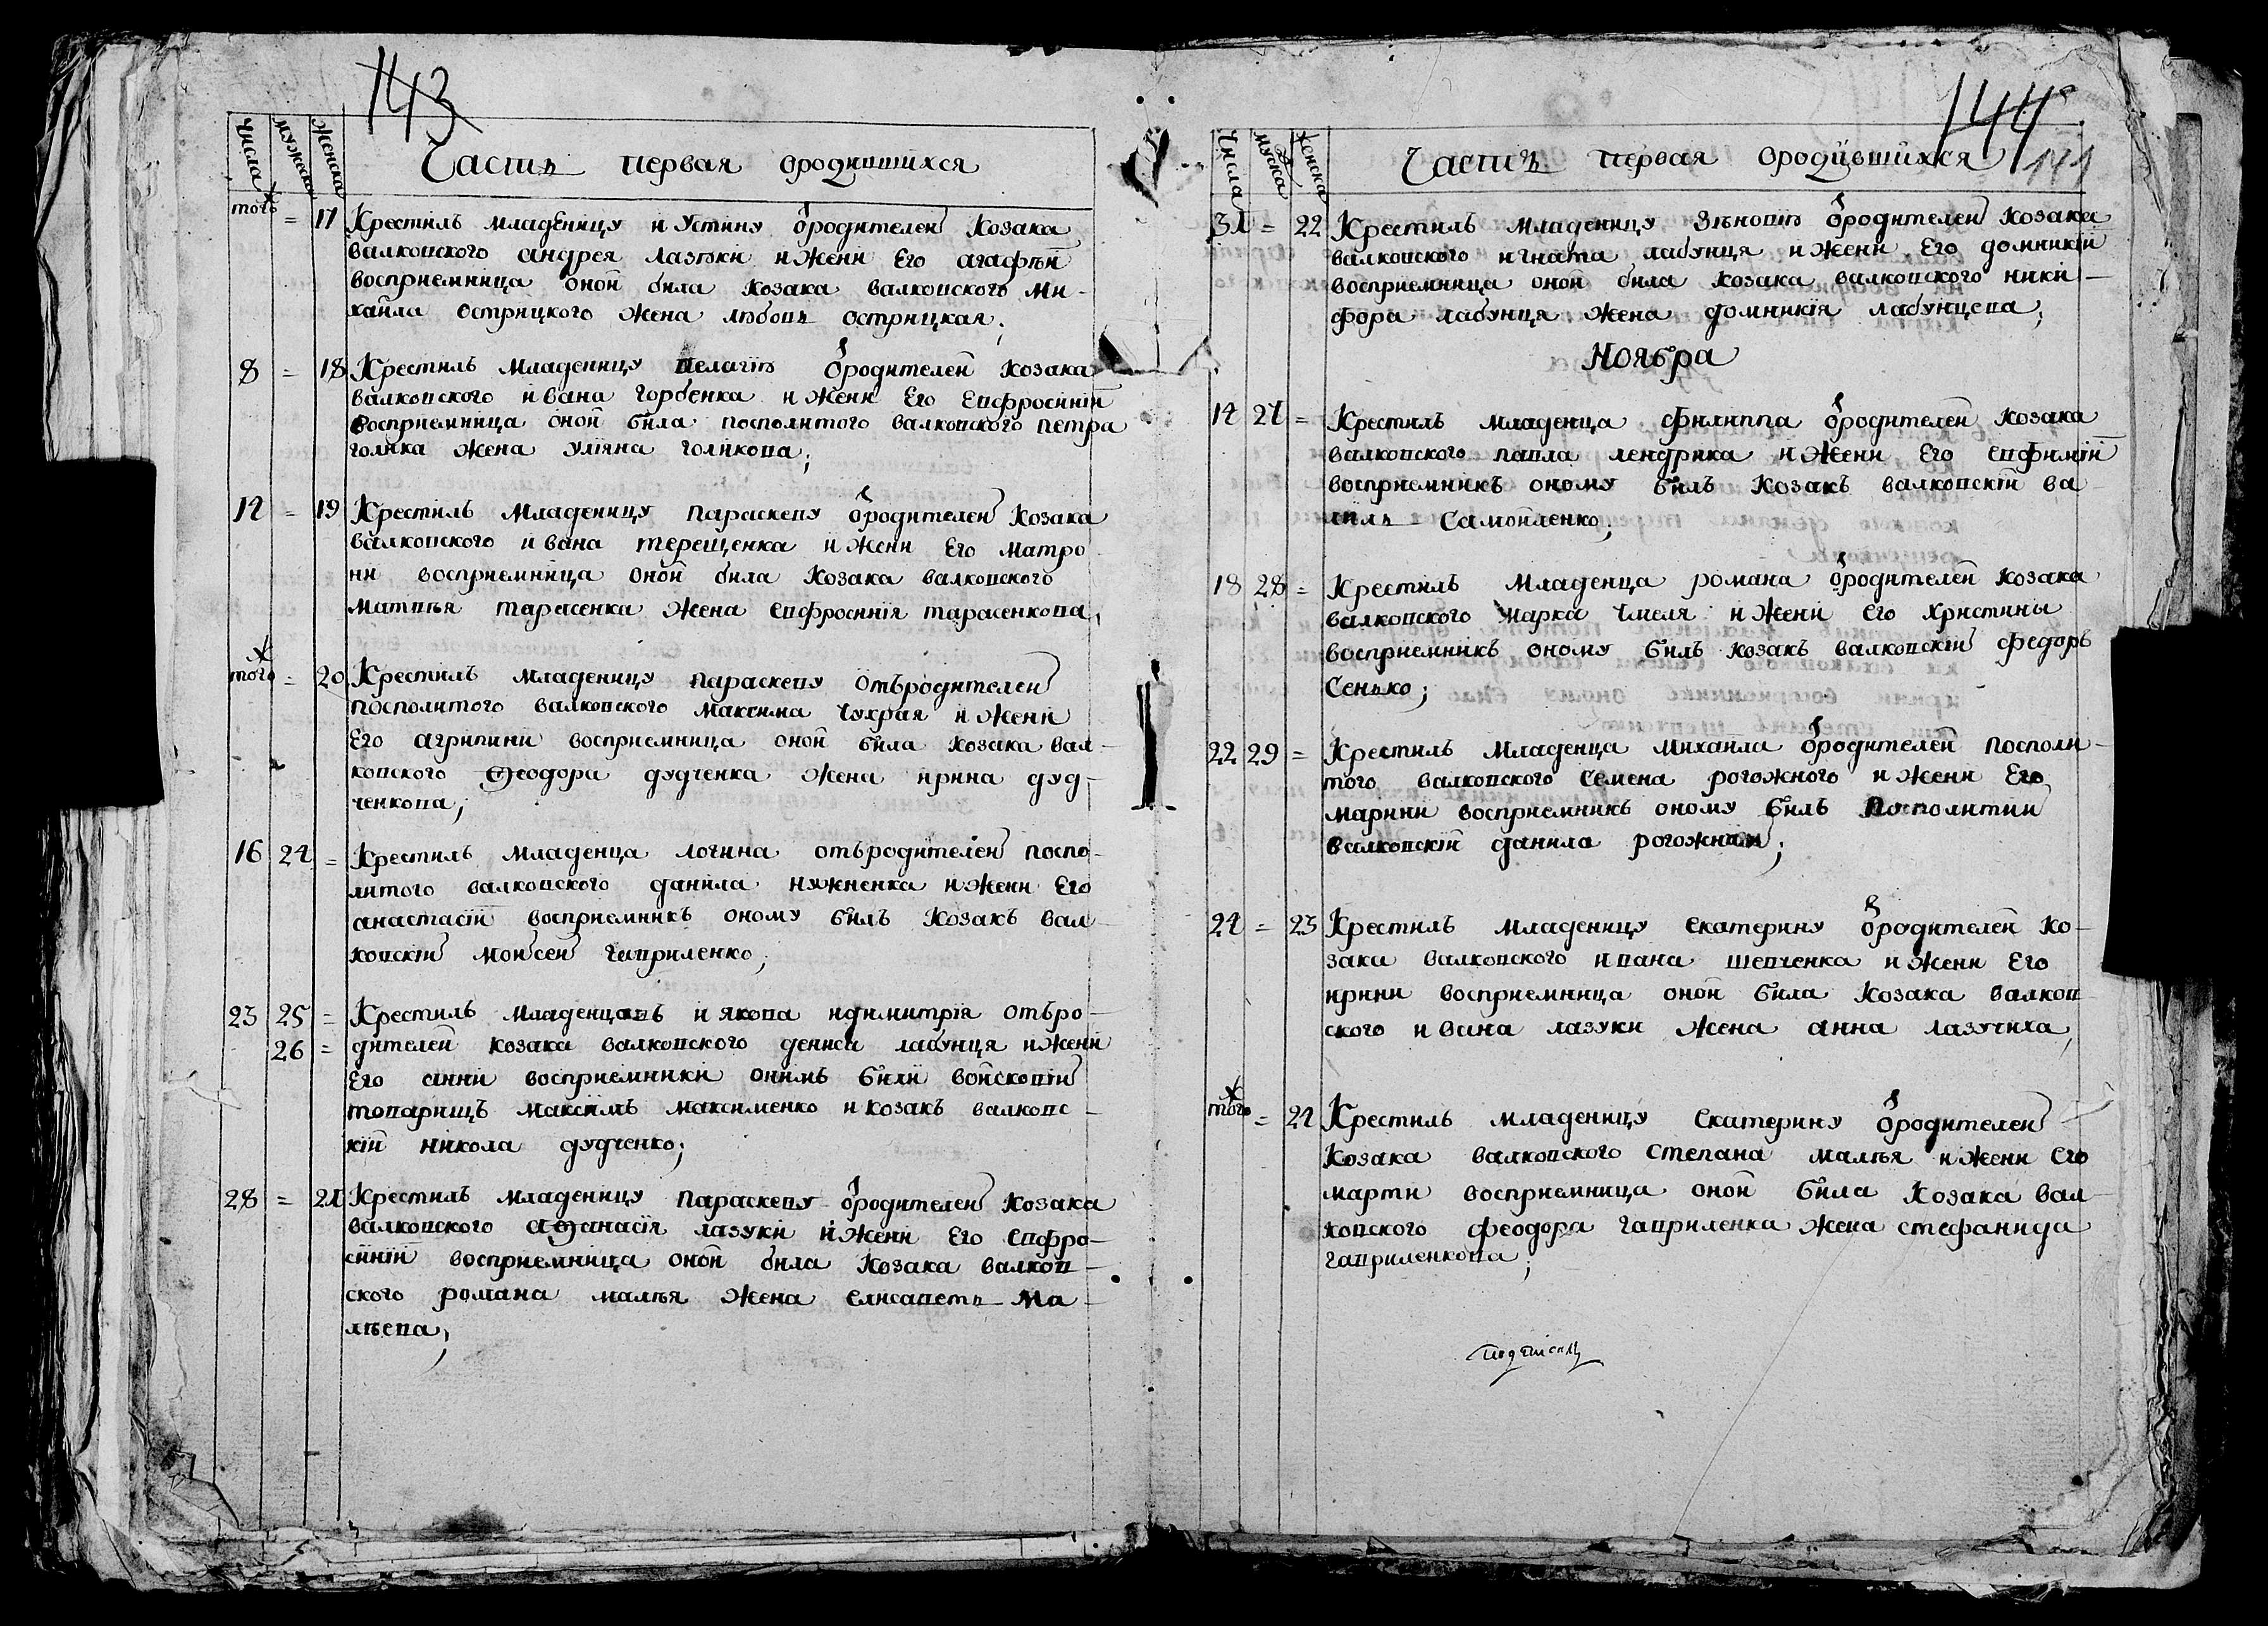 143
Числа мужеска женска
Часть первая ородившихся
того = 17 Крестилъ младеницу иУстину ѿродителей Козака
валковского андрея лазуки иЖени Его агафѣи
восприемница оной била козака валковского Ми-
хайла острицкого жена любовь острицкая;
8 = 18 Крестилъ младеницу пелагію ѿродителей козака
валковского ивана горбенка иЖени Его Евфросиніи
восприемница оной била посполитого валковского петра
голика жена уліяна голикова;
12 = 19 Крестилъ младеницу параскеву ѿродителей Козака
валковского ивана терещенка иЖени Его матро
ни восприемница оной била козака валковского
матвѣя тарасенка жена евфросинія тарасенкова,
того = 20 Крестилъ младеницу параскеву отъродителей
посполитого валковского максима чухрая иЖени
Его агрипини восприемница оной била козака вал-
ковского Ѳеодора дудченка жена ирина дуд-
ченкова;
16 24 = Крестилъ младенца логина отъродителей поспо-
литого валковского данила нужненка иЖени Его
анастасіи восприемникъ оному билъ Козакъ вал-
ковскій мойсей гавриленко;
23 25 = Крестилъ младенцовъ иякова идимитрія отъро-
26 = дителей козака валковского дениса лабунця иЖени
Его анни восприемники онимъ били войсковій
товарищъ максимъ максименко икозакъ валковс-
кій никола дудченко;
28 = 21 Крестилъ младеницу параскеву ѿродителей козака
валковского аѳанасія лазуки иЖени Его евфро-
синіи восприемница оной била козака валков-
ского романа малѣя жена елисаветь Ма-
лѣева;
144
141
Числа мужеска женска
Часть первая ородившихся
31 = 22 Крестилъ младеницу Зѣновію ѿродителей козака
валковского игната лабунця иЖени Его домникіи
восприемница оной била козака валковского ники-
фора лабунця жена домникія лабунцева;
Ноября
12 27 = Крестилъ младенца филиппа ѿродителей козака
валковского павла лендрика иЖени Его евфиміи
восприемникъ оному билъ Козакъ валковскій ва
силь Самойленко;
18 28 = Крестилъ младенца романа ѿродителей козака
валковского марка чмеля иЖени Его Христины
восприемникъ оному билъ козакъ валковскій федоръ
Сенько;
22 29 = Крестилъ младенца михайла ѿродителей посполи-
того валковского семена рогожного иЖени Его
марини восприемникъ оному билъ Посполитий
валковскій данила рогожний;
24 = 23 Крестилъ младеницу екатерину ѿродителей ко-
зака валковского ивана шевченка иЖени Его
ирини восприемница оной била козака валков
ского ивана лазуки жена анна лазучиха,
того = 24 Крестилъ младеницу екатерину ѿродителей
Козака валковского степана малѣя иЖени Его
марти восприемница оной била козака вал-
ковского феодора гавриленка жена стефанида
гавриленкова;